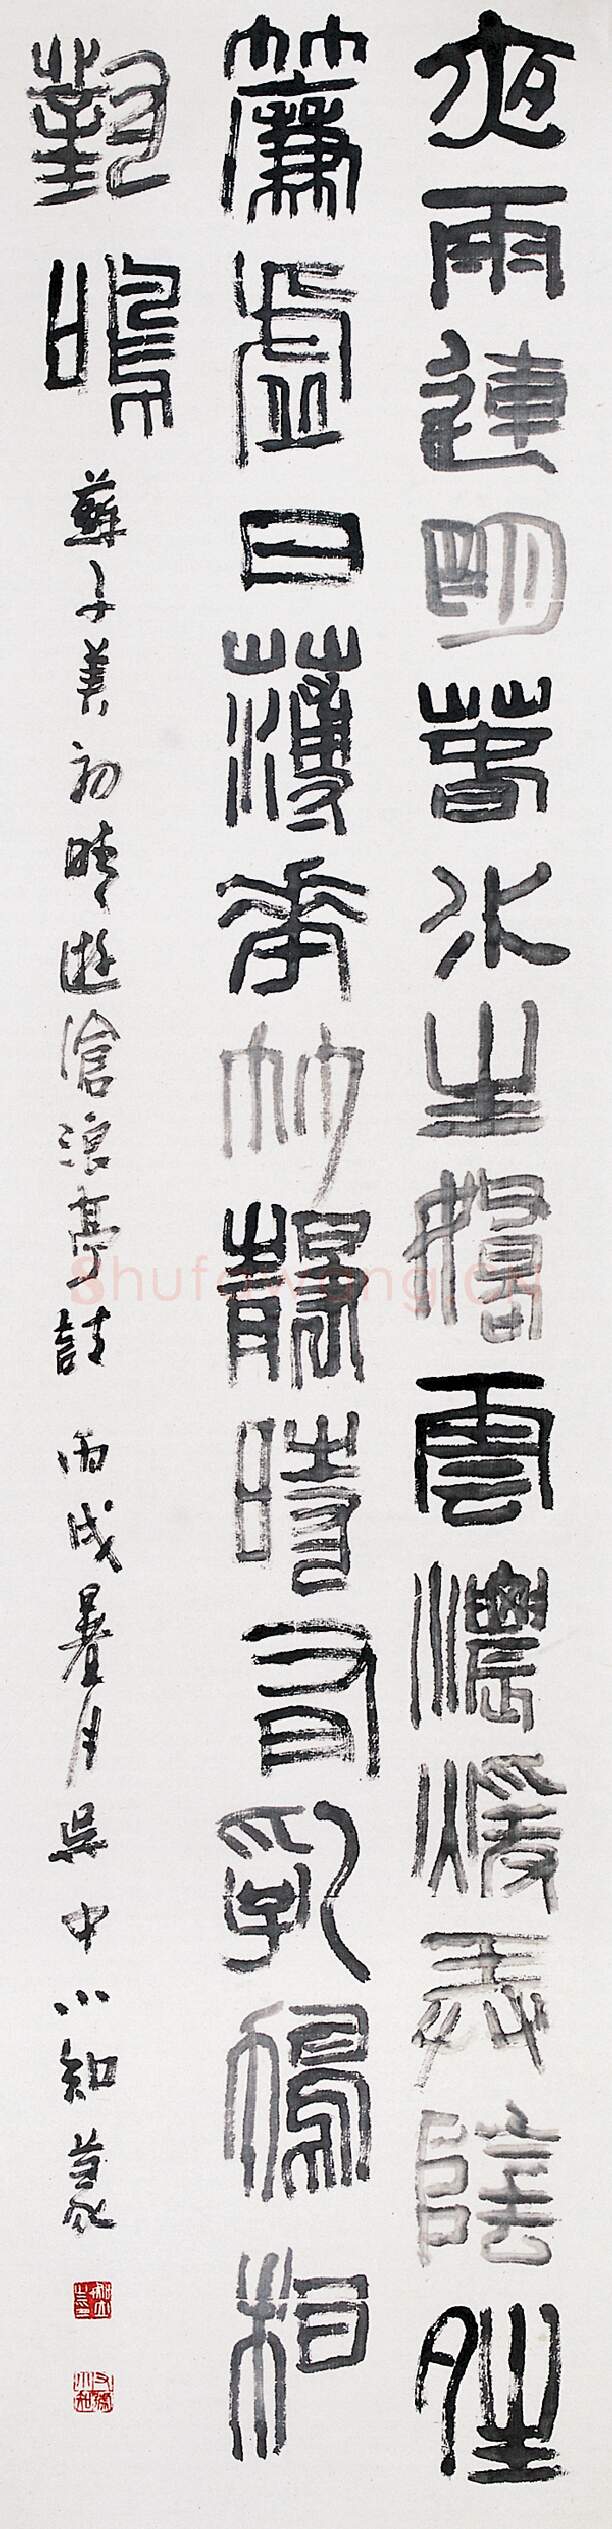 夜雨連明春水生嬌雲濃暖弄陰晴
簾虛日薄花竹靜時有乳鳩相
對鳴
蘇子美初晴遊滄浪亭詩 丙戌暑月吳中小知篆
Shufawang.CN